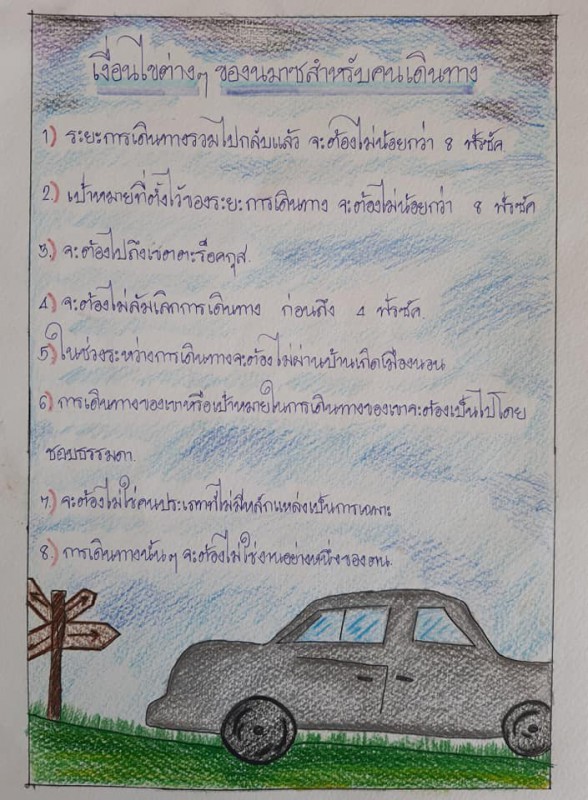 เงื่อนไขต่างๆ ของนมาซสำหรับคนเดินทาง
1) ระยะการเดินทางรวมไปกลับแล้ว จะต้องไม่น้อยกว่า 8 ฟัรซัค
2.) เป้าหมายที่ตั้งไว้ของระยะการเดินทาง จะต้องไม่น้อยกว่า 8 ฟัรซัค
3.) จะต้องไปถึงเขตตะร็อคกุส.
4.) จะต้องไม่ล้มเลิกการเดินทาง ก่อนถึง 4 ฟัรซัค.
5) ในช่วงระหว่างการเดินทางจะต้องไม่ผ่านบ้านเกิดเมืองนอน
6) การเดินทางของเขาหรือเป้าหมายในการเดินทางของเขาจะต้องเป็นไปโดย
ชอบธรรมดา.
7.) จะต้องไม่ใช่คนประเภทที่ไม่มีหลักแหล่งเป็นการเฉพาะ
8.) การเดินทางนั้นๆ จะต้องไม่ใช่งานอย่างหนึ่งของตน.